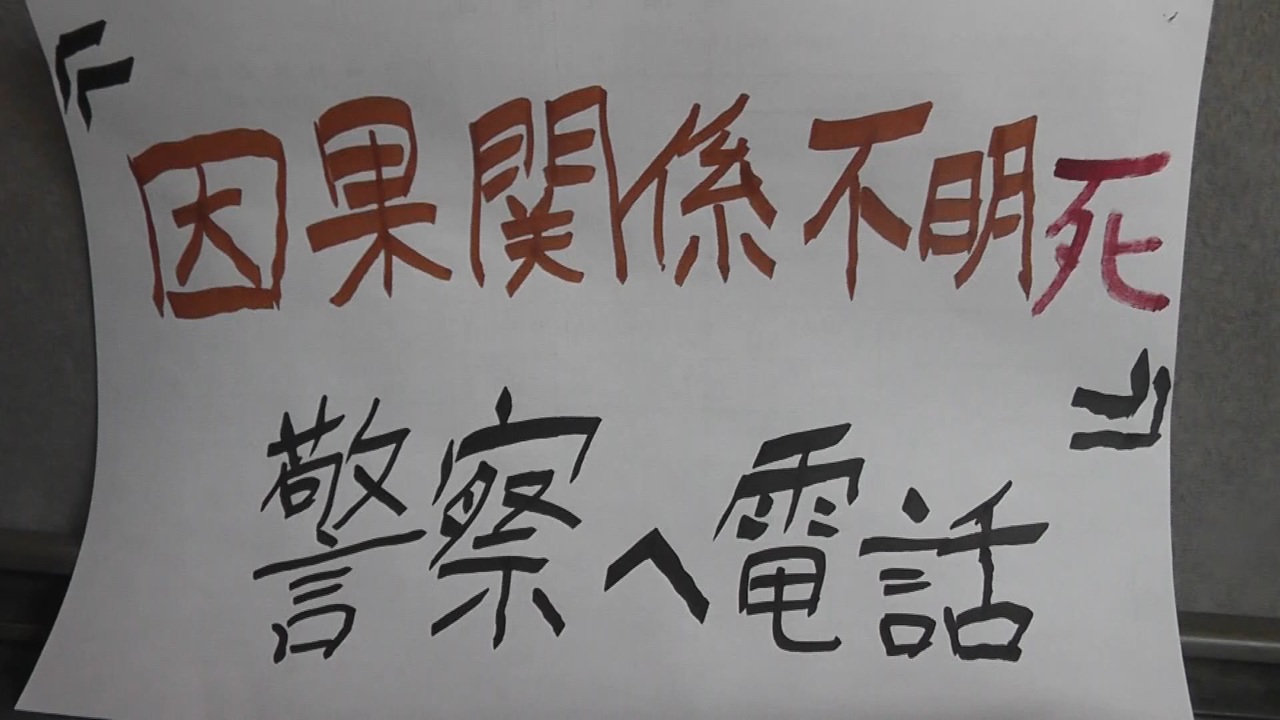 『因果関係不明死』
警察へ電話